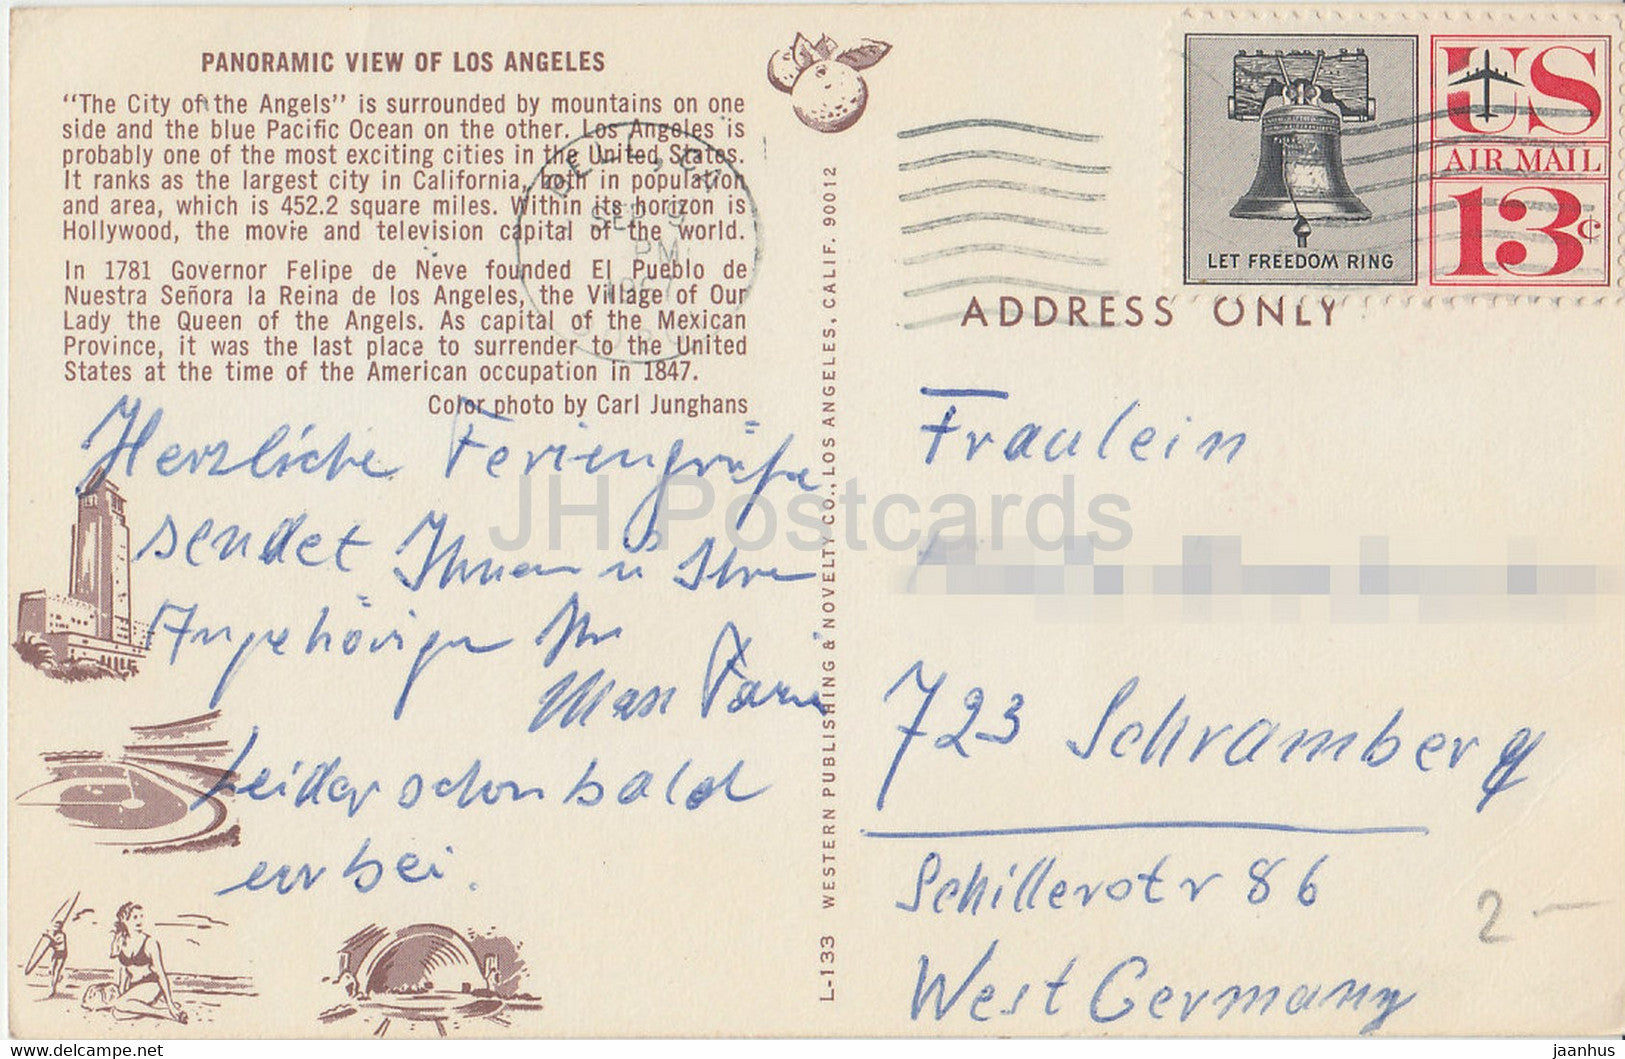 PANORAMIC VIEW OF LOS ANGELES
"The City of the Angels" is surrounded by mountains on one
side and the blue Pacific Ocean on the other. Los Angeles is
probably one of the most exciting cities in the United States.
It ranks as the largest city in California, both in population
and area, which is 452.2 square miles. Within its horizon is
Hollywood, the movie and television capital of the world.
In 1781 Governor Felipe de Neve founded El Pueblo de
Nuestra Señora la Reina de los Angeles, the Village of Our
Lady the Queen of the Angels. As capital of the Mexican
Province, it was the last place to surrender to the United
States at the time of the American occupation in 1847.
Color photo by Carl Junghans
Herzliche Feriengrüße
sendet Ihnen u Ihre
Angehörigen Ihr
Max
Leider schon bald
vorbei.
L-133 WESTERN PUBLISHING & NOVELTY CO., LOS ANGELES, CALIF. 90012
SEP
PM
LET FREEDOM RING
US
AIR MAIL
13¢
ADDRESS ONLY
Fräulein
723 Schramberg
Schillerstr 86
West Germany
2.-
JH Postcards
www.delcampe.net
jaanhus